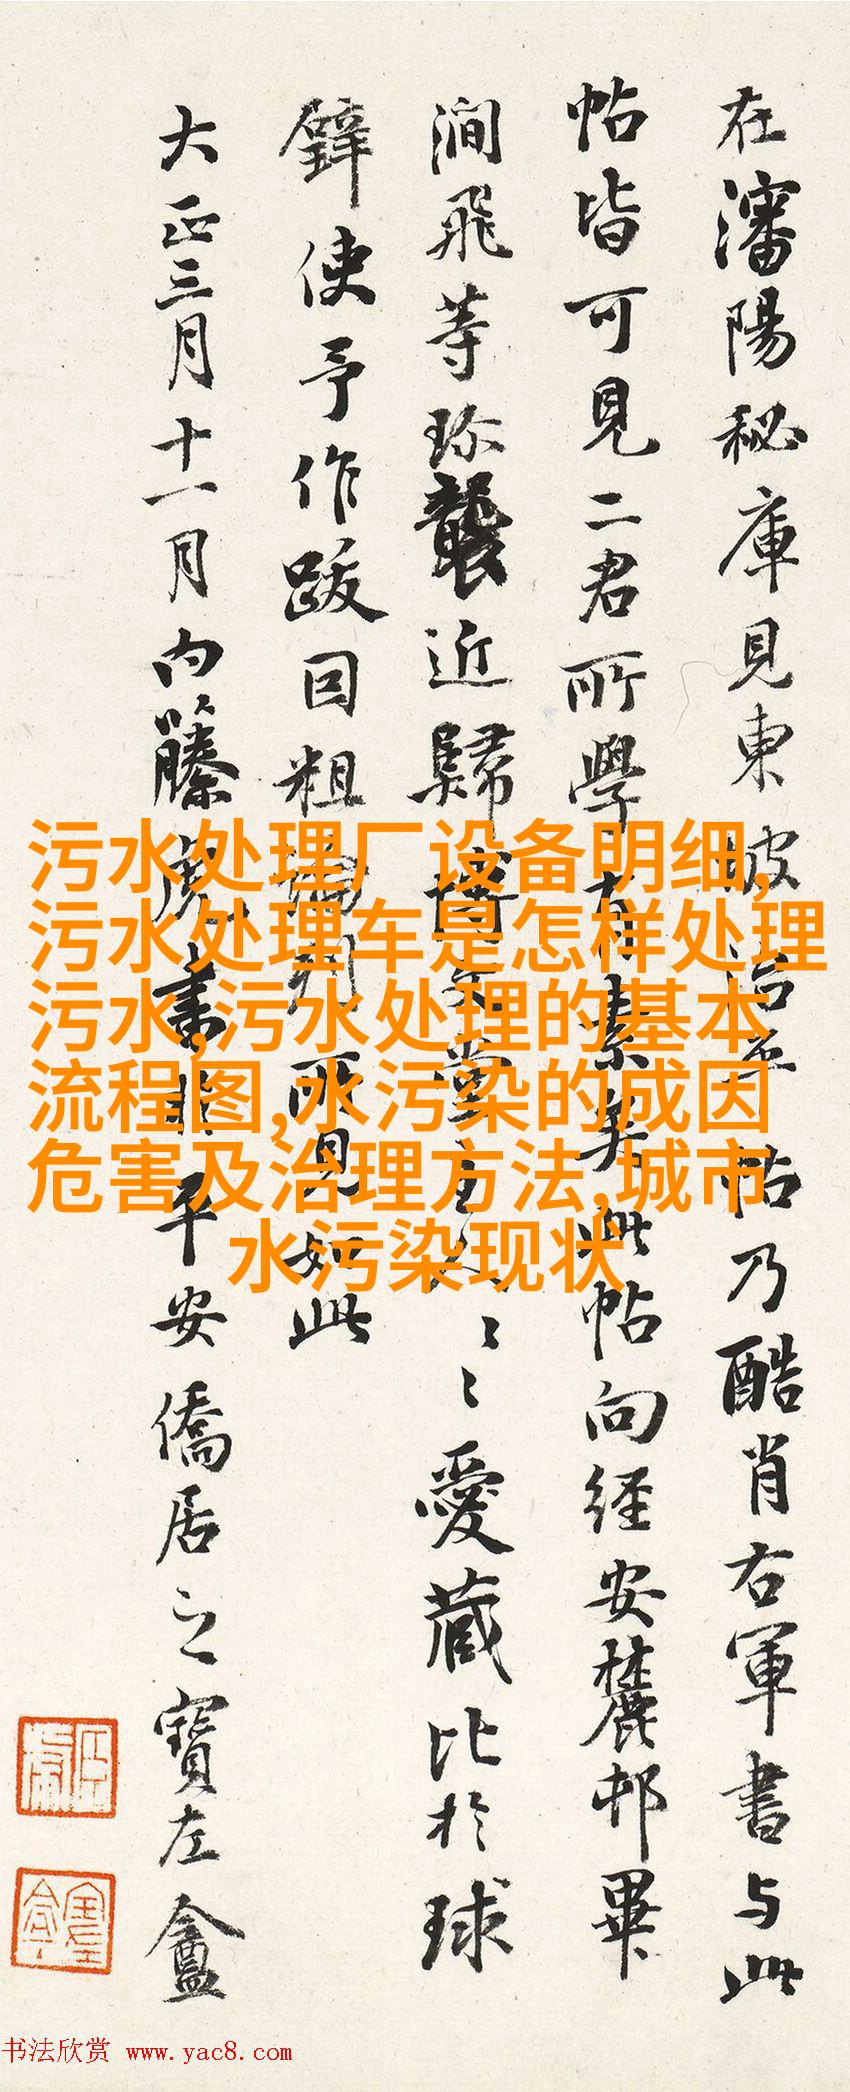 在瀋陽秘庫見東坡治平帖乃酷肖右軍書与此
帖皆可見二君所學有素矣此帖向経安麓邨畢
澗飛等珎襲近歸博文堂主人〻〻愛蔵比於球
璧使予作跋因粗論列所見如此
大正三月十一月内籐虎書於平安僑居之寶左盦
污水处理厂设备明细,
污水处理车是怎样处理
污水,污水处理的基本
流程图,水污染的成因
危害及治理方法,城市
水污染现状
书法欣赏 www.yac8.com